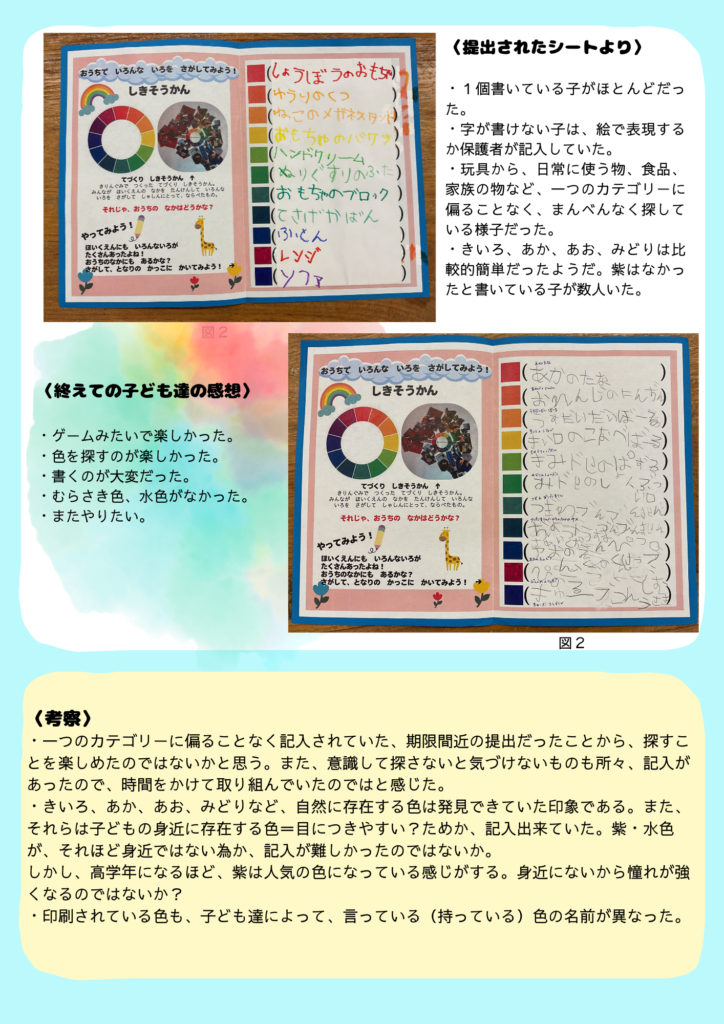 〈提出されたシートより〉
・１個書いている子がほとんどだった。
・字が書けない子は、絵で表現するか保護者が記入していた。
・玩具から、日常に使う物、食品、家族の物など、一つのカテゴリーに偏ることなく、まんべんなく探している様子だった。
・きいろ、あか、あお、みどりは比較的簡単だったようだ。紫はなかったと書いている子が数人いた。
おうちで いろんな いろを さがしてみよう！
しきそうかん
てづくり しきそうかん ↑
きりんぐみで つくった てづくり しきそうかん。
みんなが ほいくえんの なかを たんけんして いろんな
いろを さがして しゃしんにとって、ならべたもの。
それじゃ、おうちの なかはどうかな？
やってみよう！
ほいくえんにも いろんないろが
たくさんあったよね！
おうちのなかにも あるかな？
さがして、となりの かっこに かいてみよう！
しょうぼうのおもちゃ
ゆうりのくつ
ねこのメガネスタンド
おもちゃのバケツ
ハンドクリーム
ぬりぐすりのふた
おもちゃのブロック
てさげかばん
ふとん
レンジ
ソファ
図２
〈終えての子ども達の感想〉
・ゲームみたいで楽しかった。
・色を探すのが楽しかった。
・書くのが大変だった。
・むらさき色、水色がなかった。
・またやりたい。
おうちで いろんな いろを さがしてみよう！
しきそうかん
てづくり しきそうかん ↑
きりんぐみで つくった てづくり しきそうかん。
みんなが ほいくえんの なかを たんけんして いろんな
いろを さがして しゃしんにとって、ならべたもの。
それじゃ、おうちの なかはどうかな？
やってみよう！
ほいくえんにも いろんないろが
たくさんあったよね！
おうちのなかにも あるかな？
さがして、となりの かっこに かいてみよう！
図２
〈考察〉
・一つのカテゴリーに偏ることなく記入されていた、期限間近の提出だったことから、探すことを楽しめたのではないかと思う。また、意識して探さないと気づけないものも所々、記入があったので、時間をかけて取り組んでいたのではと感じた。
・きいろ、あか、あお、みどりなど、自然に存在する色は発見できていた印象である。また、それらは子どもの身近に存在する色＝目につきやすい？ためか、記入出来ていた。紫・水色が、それほど身近ではない為か、記入が難しかったのではないか。
しかし、高学年になるほど、紫は人気の色になっている感じがする。身近にないから憧れが強くなるのではないか？
・印刷されている色も、子ども達によって、言っている（持っている）色の名前が異なった。